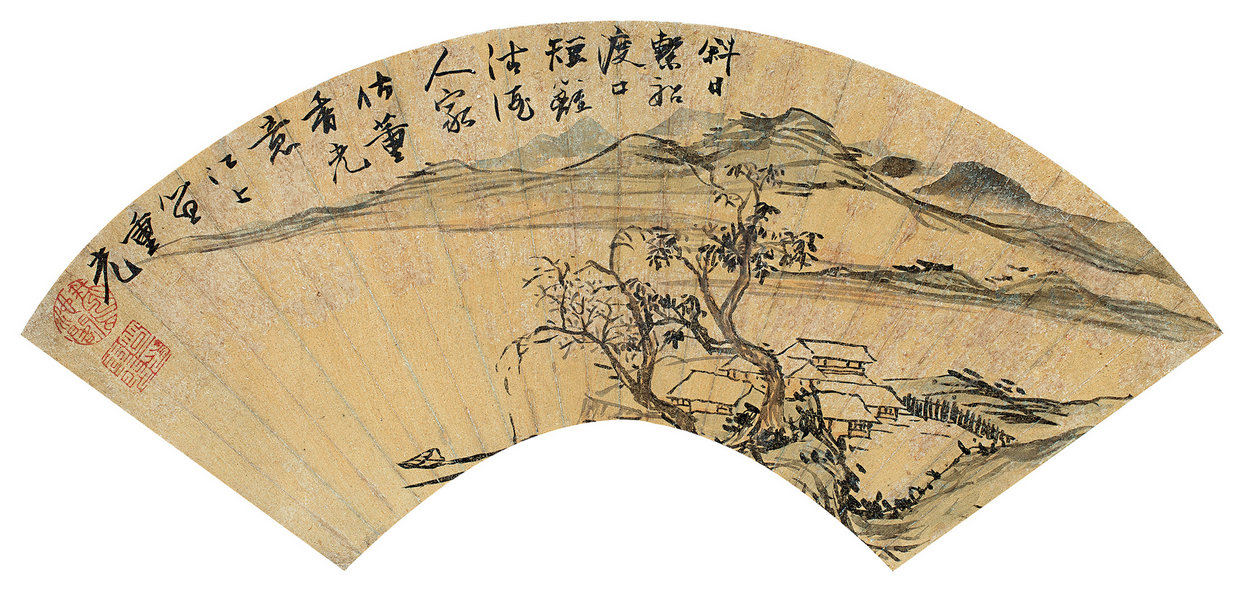 斜日
繫船
渡口
短籬
沽酒
人家
仿董
香光
意
江上
笪
重
光